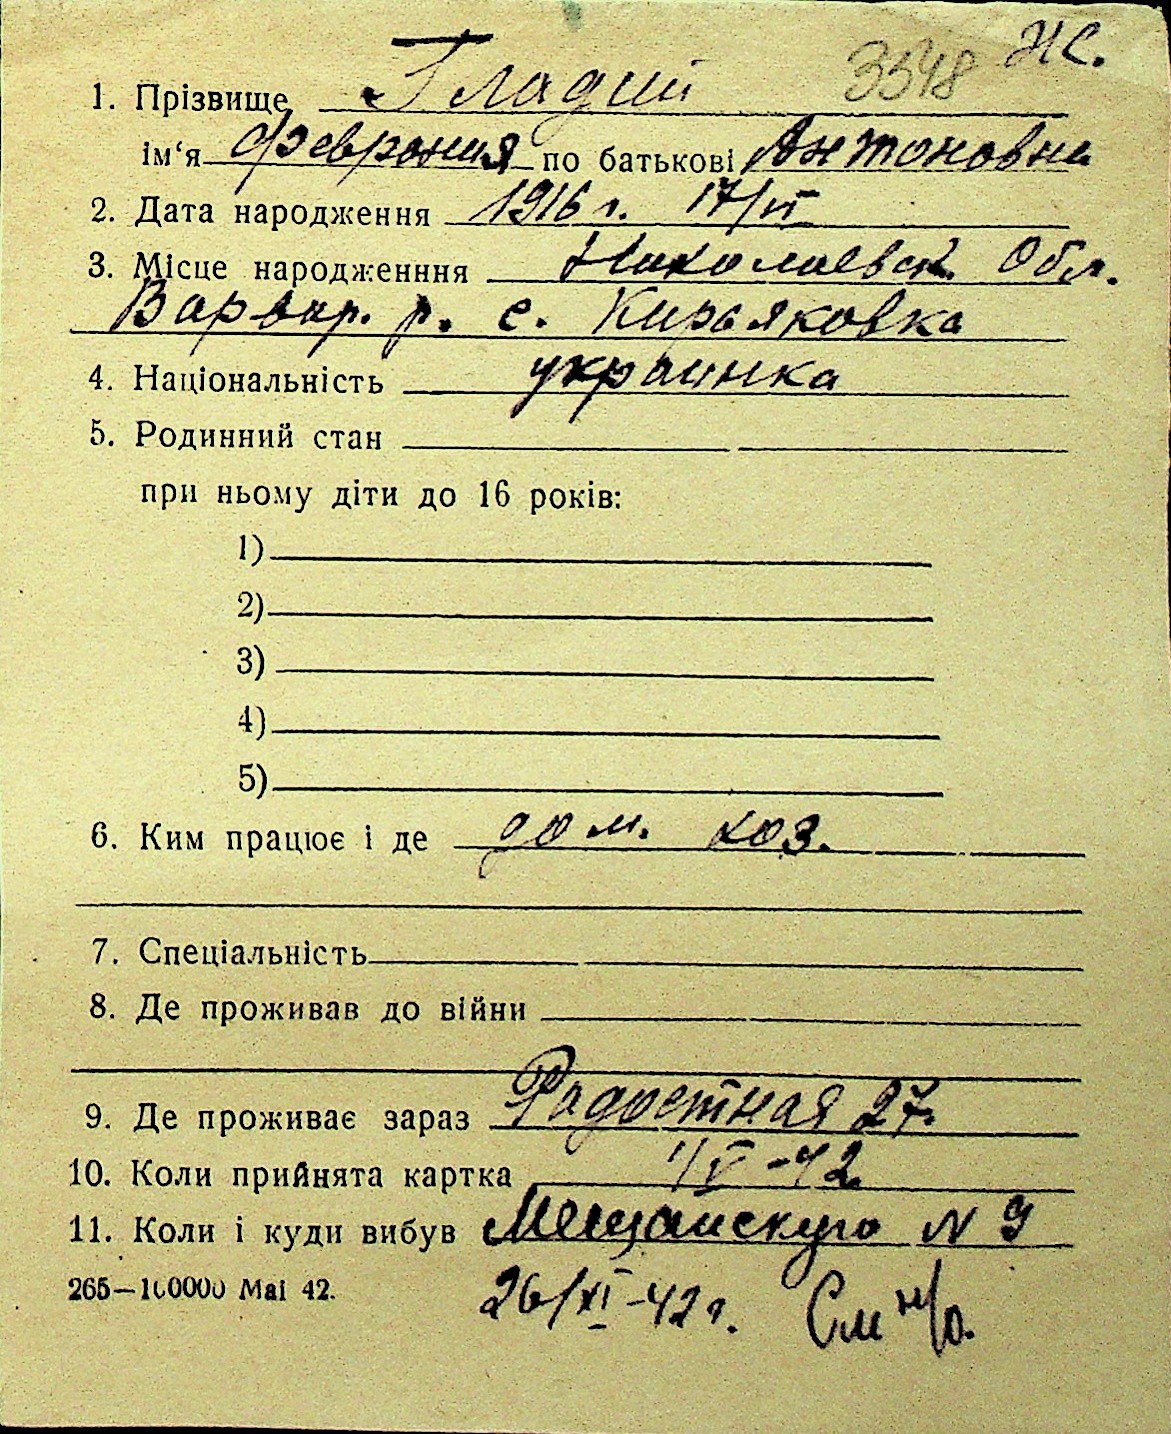 3548 Ж.
1. Прізвище Гладий
ім‘я Феврония по батькові Антоновна
2. Дата народження 1916 г. 17/VI
3. Місце народженння Николаевск. Обл.
Варвар. р. с. Кирьяковка
4. Національність украинка
5. Родинний стан
при ньому діти до 16 років:
1)
2)
3)
4)
5)
6. Ким працює і де дом. хоз.
7. Спеціальність
8. Де проживав до війни
9. Де проживає зараз Радостная 27.
10. Коли прийнята картка 1/V-42
11. Коли і куди вибув Мещанскую N 9
265—100000 Mai 42. 26/XI-42 г. См н/о.